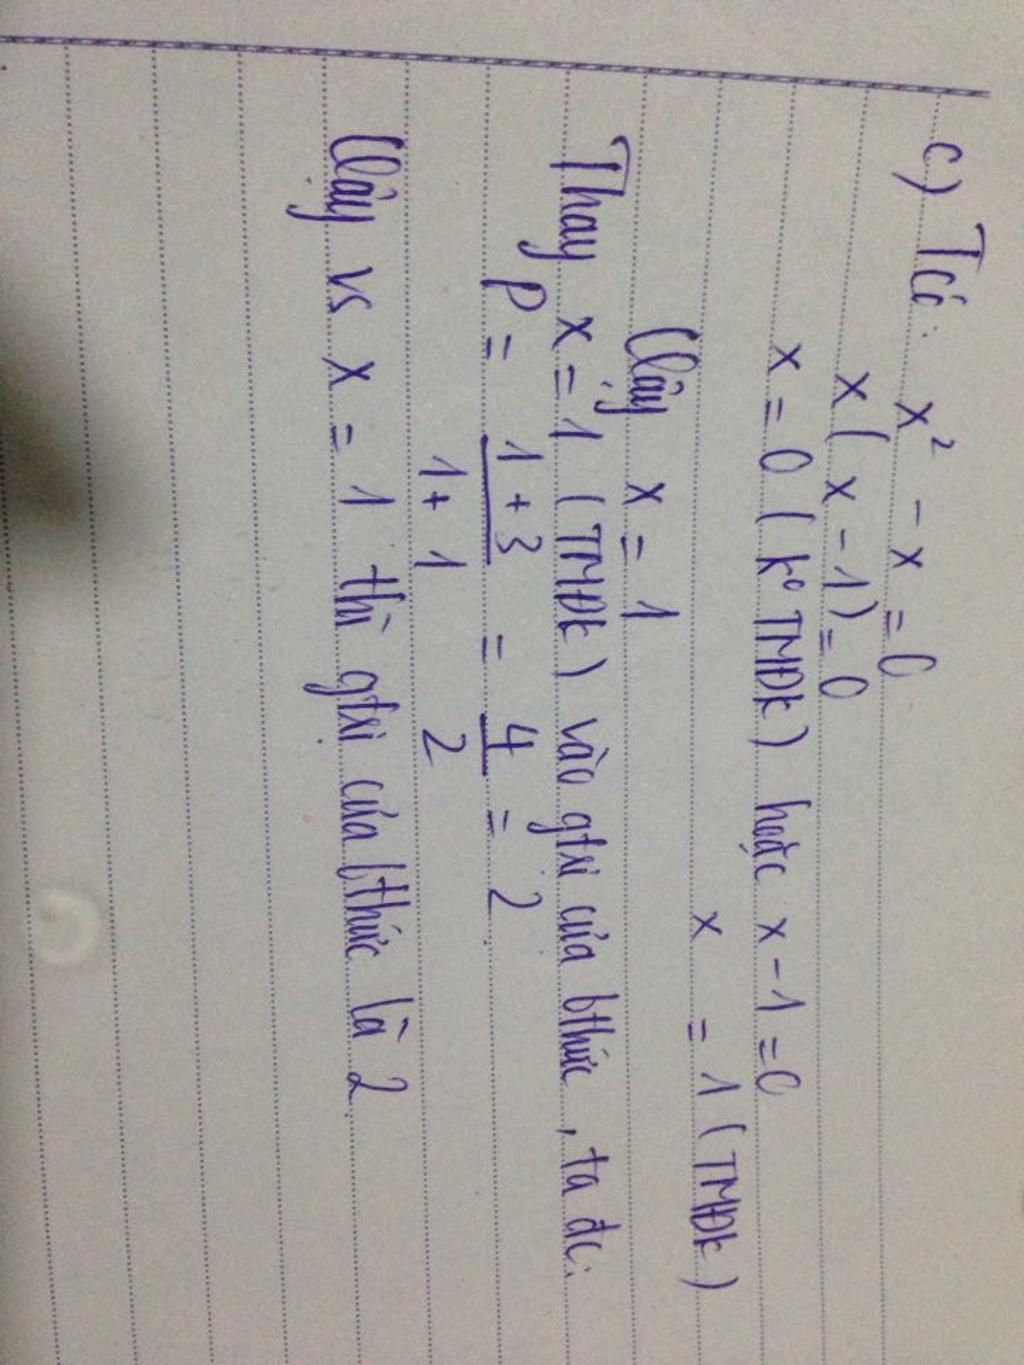 c) Tcó: x² - x = 0
x(x-1)=0
x = 0 (k° TMĐK) hoặc x-1=0
x = 1 (TMĐK)
Vậy x = 1
Thay x = 1 (TMĐK) vào gtrị của bthức, ta đc:
P = \frac{1+3}{1+1} = \frac{4}{2} = 2
Vậy vs x = 1 thì gtrị của bthức là 2